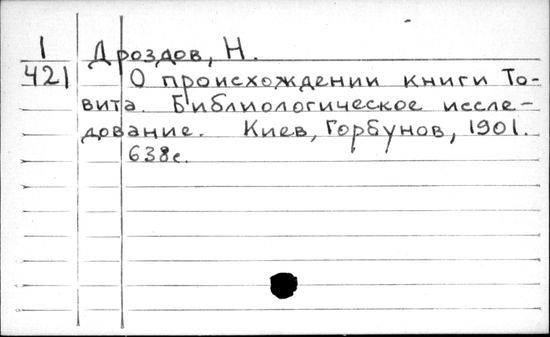 I Дроздов, Н.
421 О происхождении книги То-
вита. Библиологическое иссле-
дование. Киев, Горбунов, 1901.
638с.